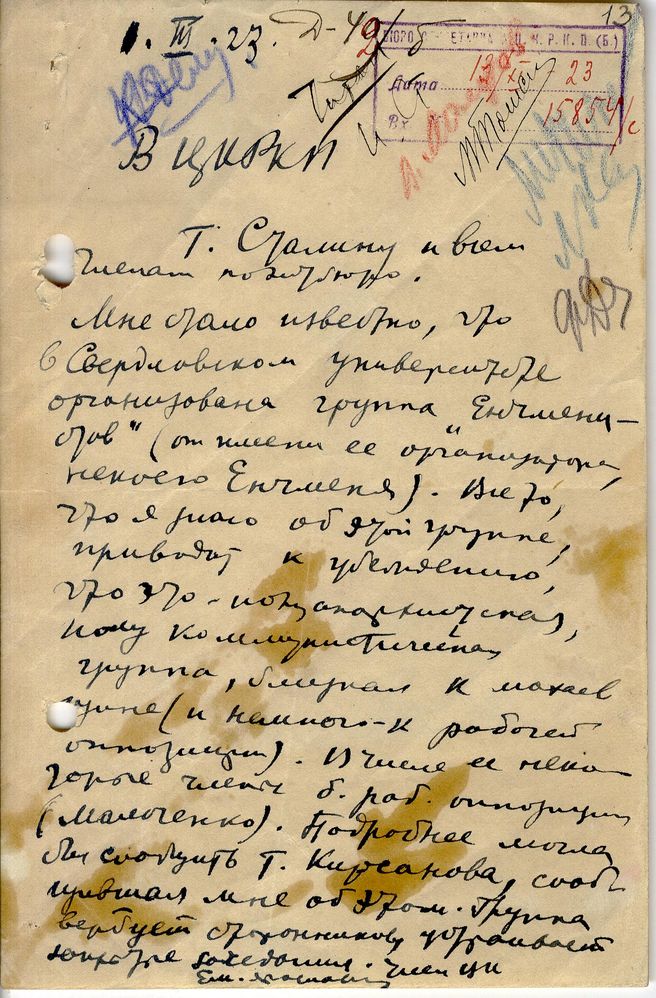 13
1. III. 23.
БЮРО СЕКРЕТАРИАТА Ц.К. Р.К.П. (Б.)
Дата 13/XI 23
Вх. 15854/с
В ЦК РКП
М Томск
Т. Сталину и всем
членам политбюро.
Мне стало известно, что
в Свердловском университете
организована группа „Енчмени-
стов" (от имени ее организатора,
некоего Енчменя). Все то,
что я знаю об этой группе,
приводит к убеждению,
что это - полуанархическая,
полу коммунистическая
группа, близкая к махаев
щине (и немного - к рабочей
оппозиции). В числе ее неко-
торые члены б. раб. оппозиции
(Мальченко). Подробнее могла
бы сообщить т. Кирсанова, сооб-
щившая мне об этом. Группа
вербует сторонников, устраивает
закрытые заседания. Член ЦК
Ем. Ярославский